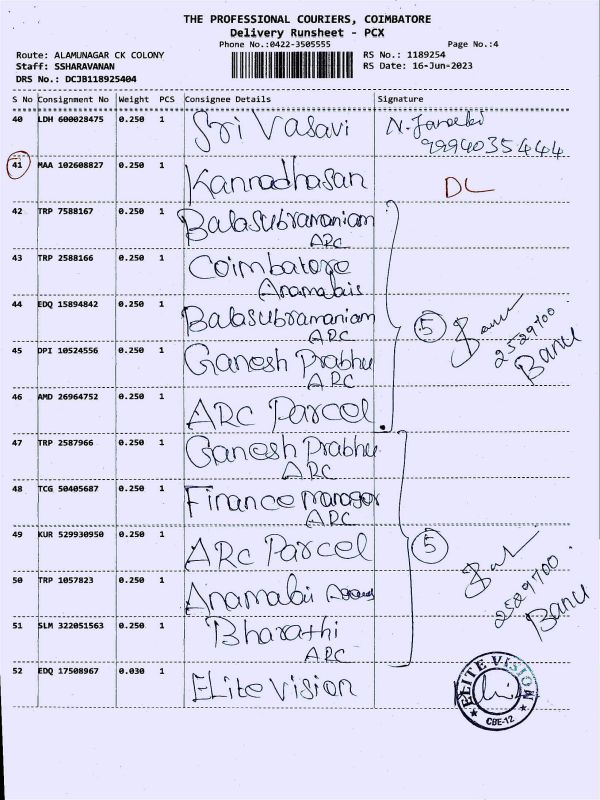 THE PROFESSIONAL COURIERS, COIMBATORE
Delivery Runsheet - PCX
Phone No.:0422-3505555
Page No.:4
Route: ALAMUNAGAR CK COLONY
RS No.: 1189254
Staff: SSHARAVANAN
RS Date: 16-Jun-2023
DRS No.: DCJB118925404
S No Consignment No Weight PCS Consignee Details Signature
40 LDH 600028475 0.250 1 Sri Vasavi
9994035444
41 MAA 102608827 0.250 1 Kannadhasan DL
42 TRP 7588167 0.250 1 Balasubramaniam
ARC
43 TRP 2588166 0.250 1 Coimbatore
Anamalais
44 EDQ 15894842 0.250 1 Balasubramaniam
ARC
5
2529700
Banu
45 DPI 10524556 0.250 1 Ganesh Prabhu
ARC
46 AMD 26964752 0.250 1 ARC Parcel
47 TRP 2587966 0.250 1 Ganesh Prabhu
ARC
48 TCG 50405687 0.250 1 Finance manager
ARC
49 KUR 529930950 0.250 1 ARC Parcel
5
2529700
Banu
50 TRP 1057823 0.250 1 Anamalai
51 SLM 322051563 0.250 1 Bharathi
ARC
52 EDQ 17508967 0.030 1 ELite vision
ELITE VISION
CBE-12